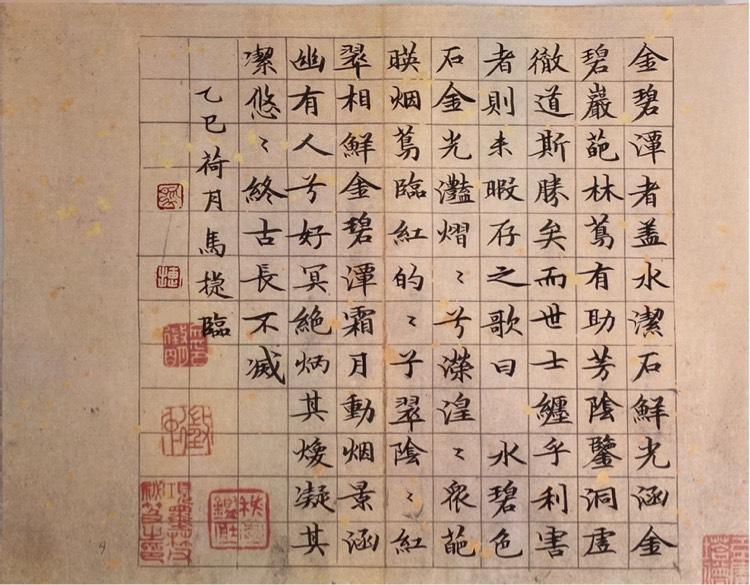 金碧潭者盖水潔石鮮光涵金
碧巖葩林蔦有助芳陰鑒洞虛
徹道斯勝矣而世士纏乎利害
者則未暇存之歌曰 水碧色
石金光灩熠〻兮濚湟〻泉葩
暎烟蔦臨紅的〻子翠陰〻紅
翠相鮮金碧潭霜月動烟景涵
幽有人兮好冥絶炳其煥凝其
潔悠〻終古長不滅
乙巳荷月馬捷臨